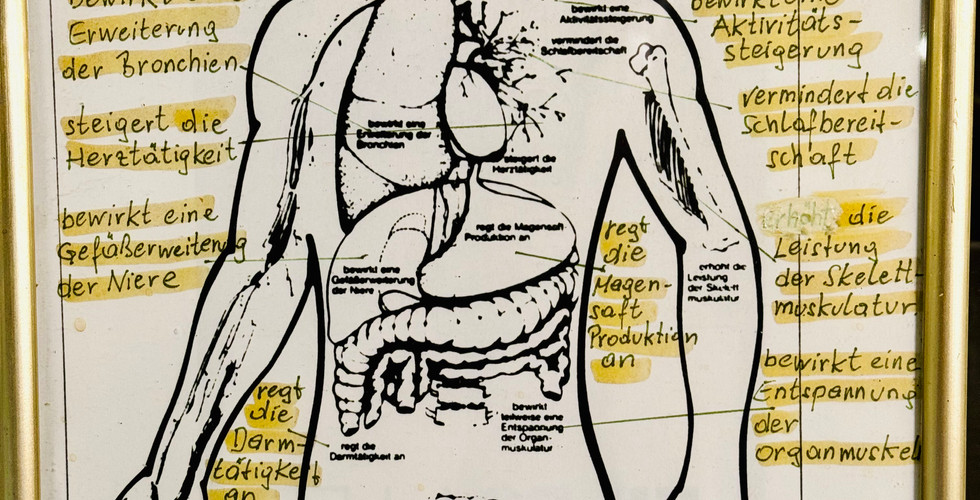 bewirkt eine
Erweiterung
der Bronchien
steigert die
Herztätigkeit
bewirkt eine
Gefäßerweiterung
der Niere
regt
die
Darm-
tätigkeit
an
bewirkt eine
Aktivitätssteigerung
vermindert die
Schlafbereitschaft
bewirkt eine
Erweiterung der
Bronchien
steigert die
Herztätigkeit
regt die Magensaft
Produktion an
bewirkt eine
Gefäßerweiterung
der Niere
erhöht die
Leistung
der Skelett
muskulatur
bewirkt
teilweise eine
Entspannung
der Organ-
muskulatur
regt die
Darmtätigkeit an
regt
die
Magen-
saft
Produktion
an
bewirkt eine
Aktivitäts-
steigerung
vermindert die
Schlafbereit-
schaft
erhöht die
Leistung
der Skelett-
muskulatur
bewirkt eine
Entspannung
der
organmuskel